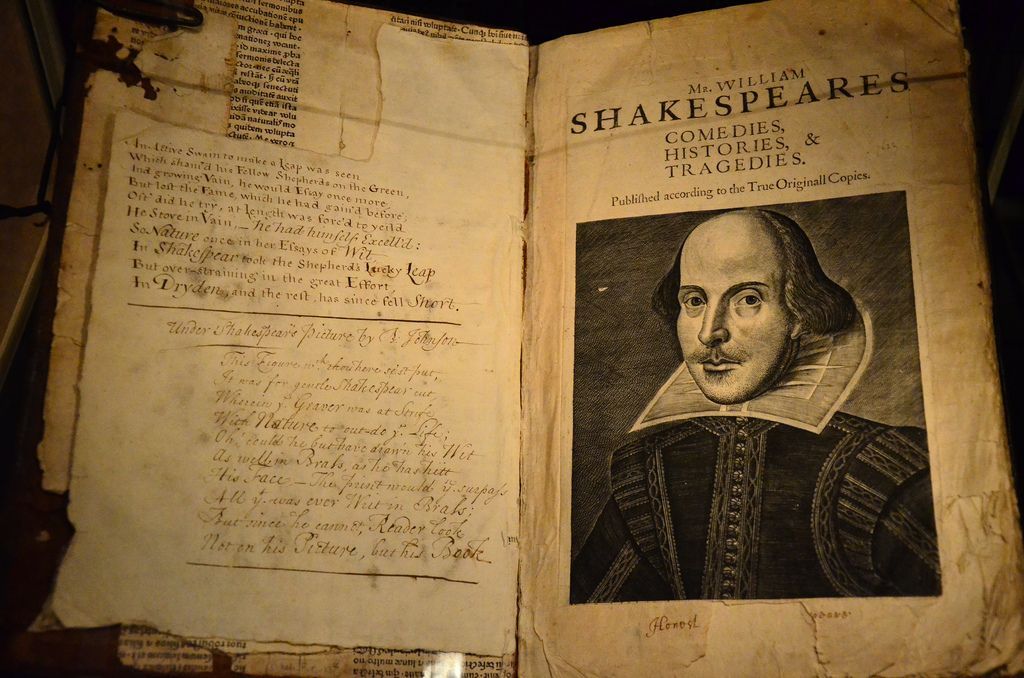 fermonibus
accusatione
qui hoc
grecã
nationez vocant
io maxime
fermonis
voluptate
An Active Swain to make a Leap was seen
Which sham'd his Fellow Shepherds on the Green,
And growing Vain, he would Essay once more,
But lost the Fame, which he had gain'd before;
Oft' did he try, at Length was forc'd to yeild
He Strove in Vain, – he had himself Excell'd:
So Nature once in her Essays of Wit,
In Shakespear took the Shepherd's Lucky Leap
But over-straining in the great Effort,
In Dryden, and the rest, has since fell Short.
Under Shakespear's Picture by B. Johnson
This Figure yt. thou here seest put,
It was for gentle Shakespear cut,
Wherein ye. Graver was at Strife
With Nature to out-do ye. Life;
Oh, could he but have drawn his Wit
As well in Brass, as he has hitt
His Face, – The print would yn. surpass
All yt. was ever Writ in Brass;
But since he cannot, Reader look
Not on his Picture, but his Book
Mr. WILLIAM
SHAKESPEARES
COMEDIES,
HISTORIES, &
TRAGEDIES.
Publiſhed according to the True Originall Copies.
Honest